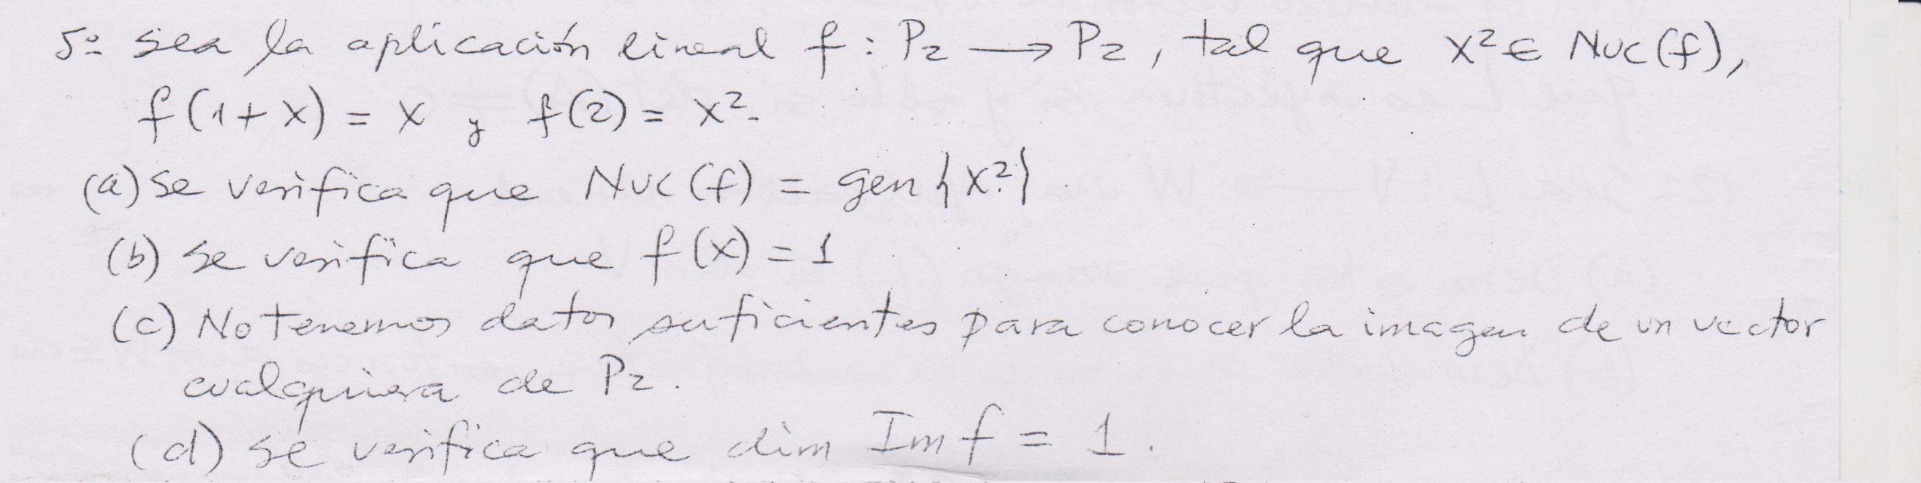 5º Sea la aplicación lineal f : P₂ → P₂, tal que x² ∈ Nuc(f),
f(1+x) = x y f(2) = x².
(a) Se verifica que Nuc(f) = gen{x²}
(b) Se verifica que f(x) = 1
(c) No tenemos datos suficientes para conocer la imagen de un vector
cualquiera de P₂.
(d) Se verifica que dim Im f = 1.